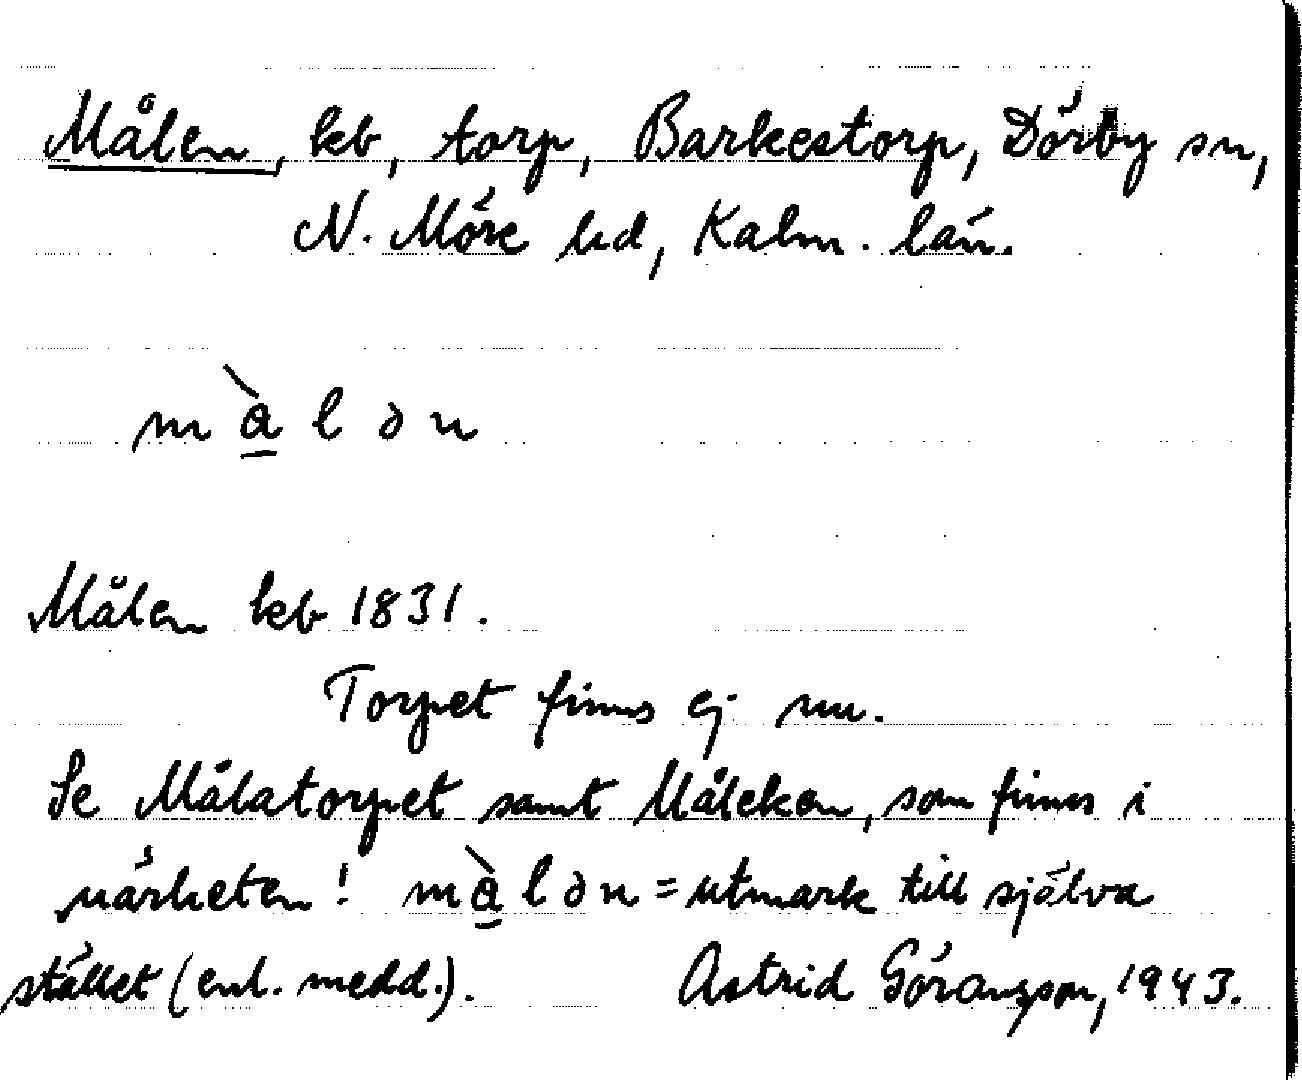 Målen, kb, torp, Barkestorp, Dörby sn,
N. Möre hd, Kalm. län.
m à̱ l ə n
Målen kb 1831.
Torpet finns ej nu.
Se Målatorpet samt Måleken, som finns i
närheten! m à̱ l ə n = utmark till själva
stället (enl. medd.). Astrid Göranzson, 1943.